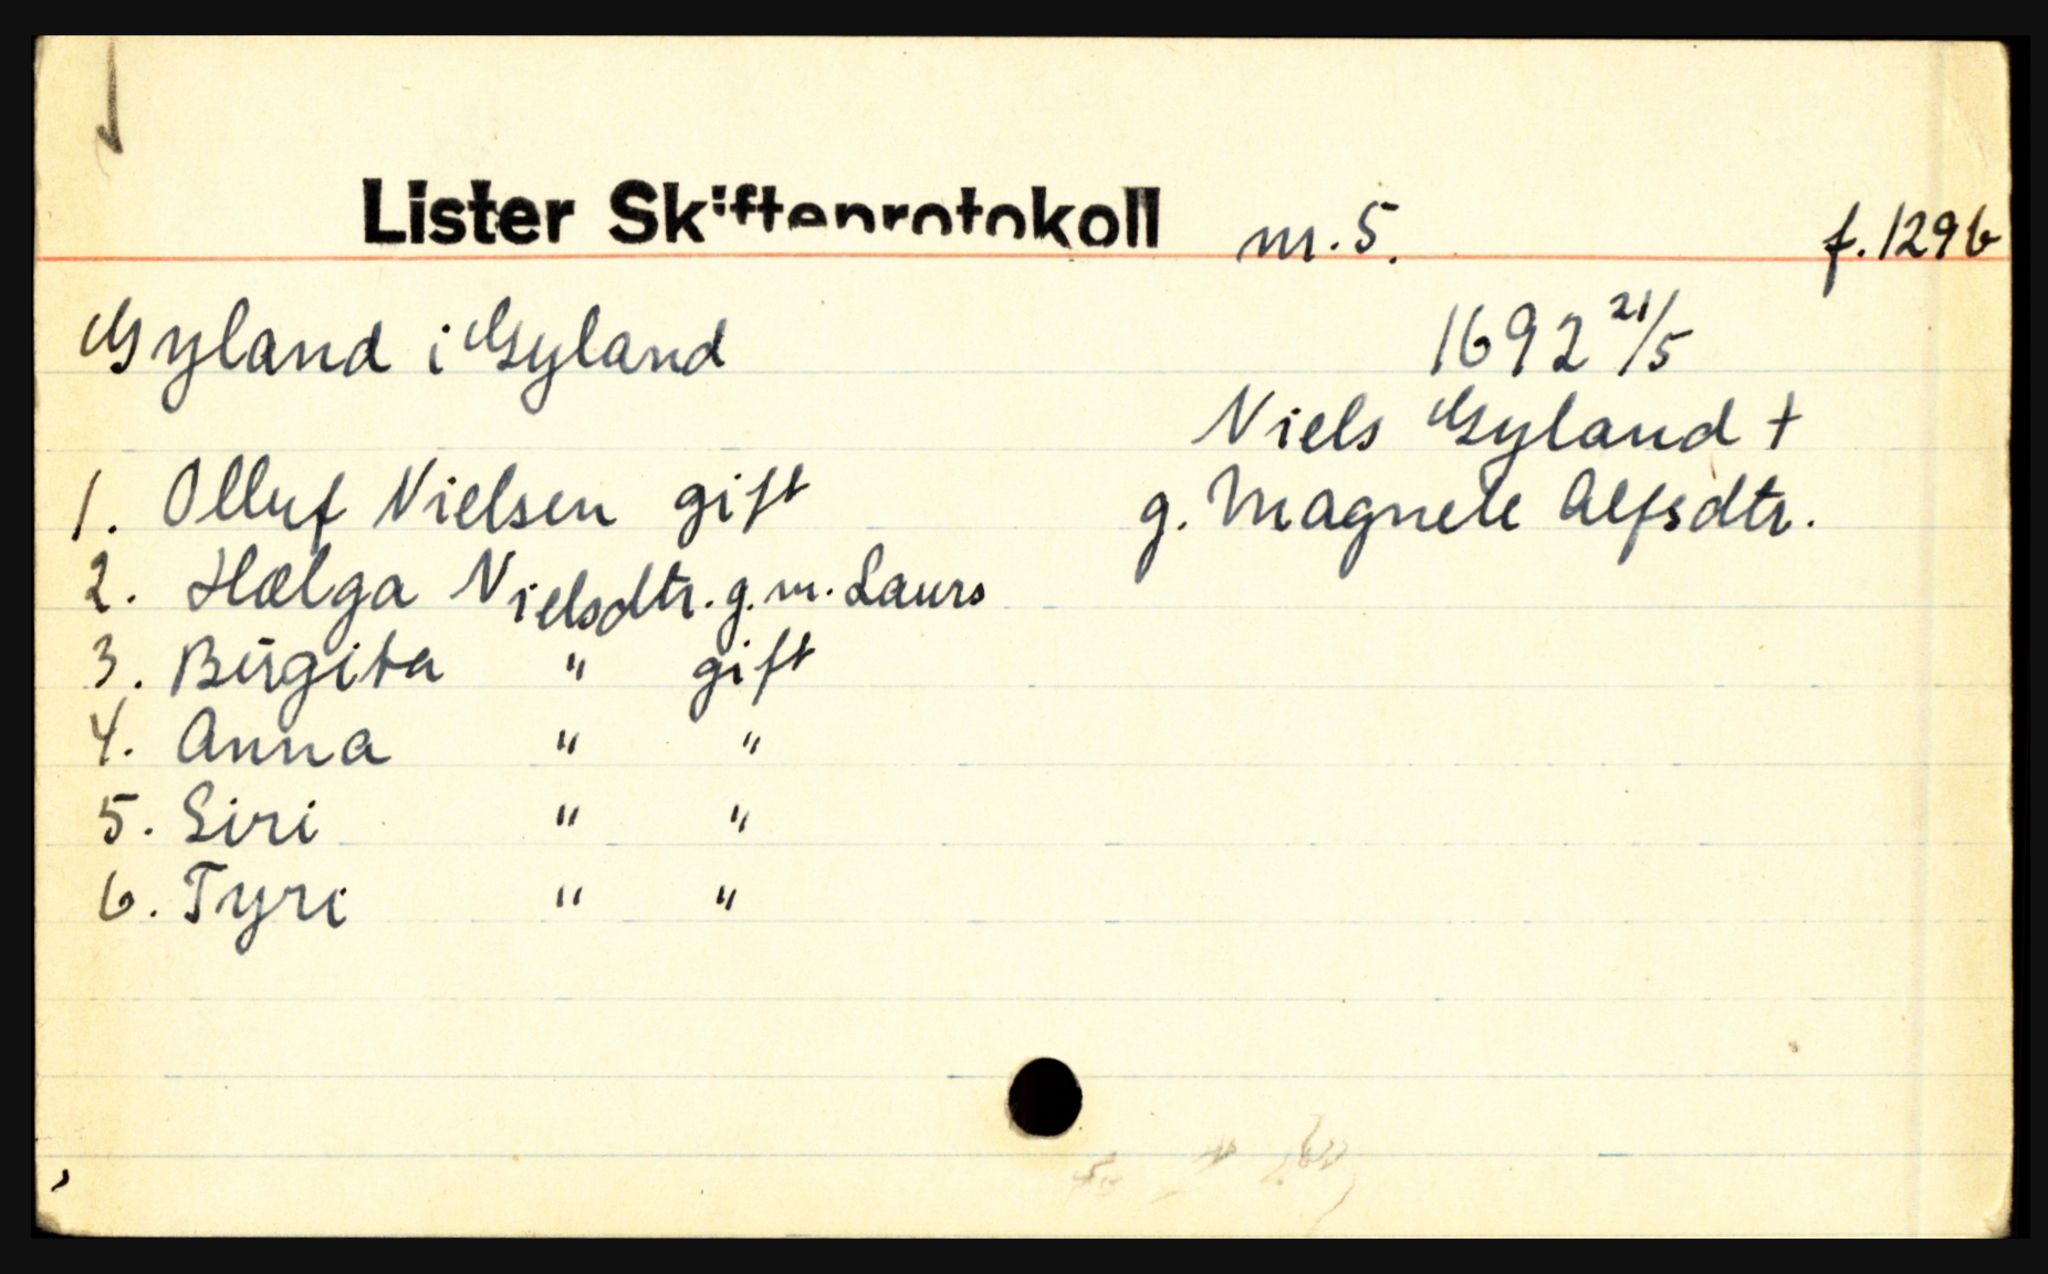 Lister Skifteprotokoll nr. 5. f. 129b
Gyland i Gyland 1692 21/5
Niels Gyland +
1. Olluf Nielsen gift g. Magnete Alfsdtr.
2. Hælga Nielsdtr. g.m. Laurs
3. Birgita " gift
4. Anna " "
5. Siri " "
6. Tyri " "